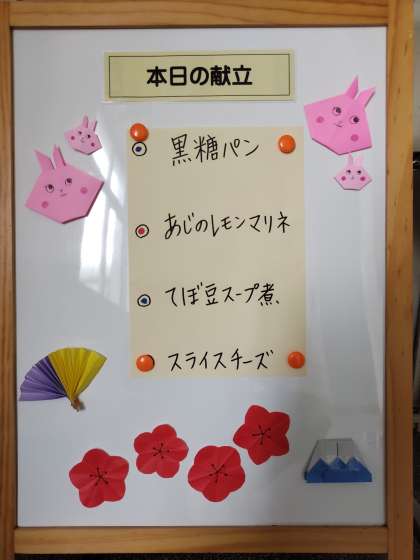 本日の献立
黒糖パン
あじのレモンマリネ
てぼ豆スープ煮、
スライスチーズ